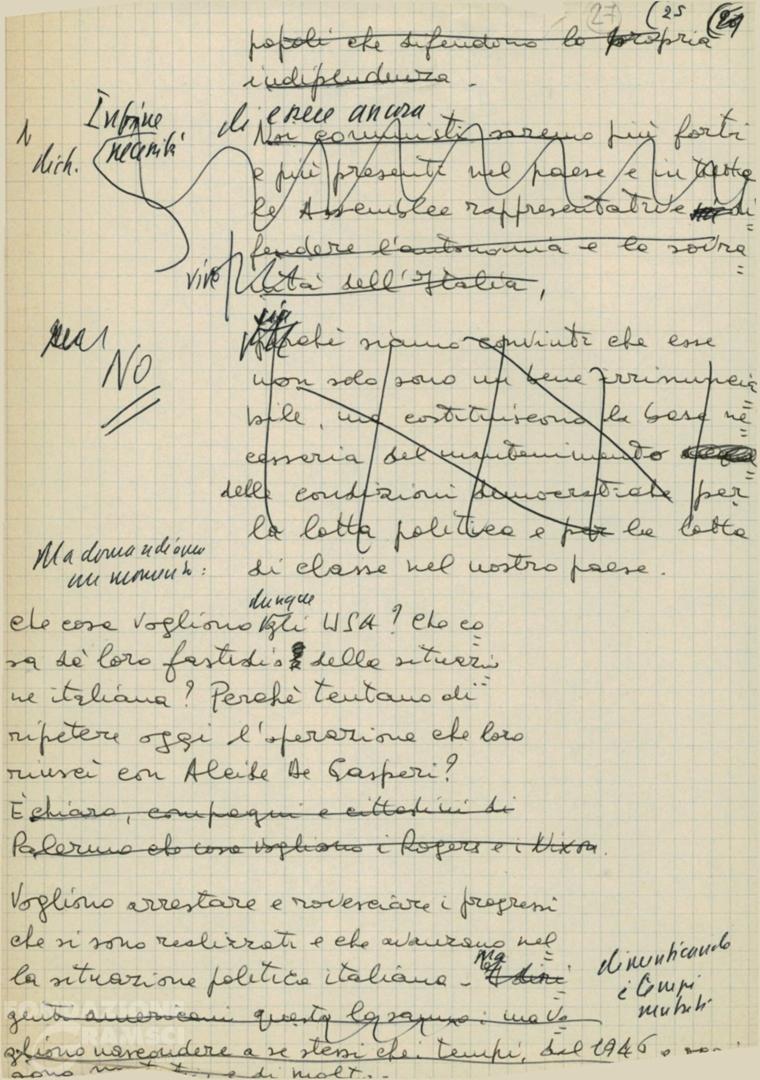 27 (25 (29
popoli che difendono la propria
indipendenza.
Infine di essere ancora
Noi comunisti saremo più forti
dich. necessità
e più presenti nel paese e in tutte
le Assemblee rappresentative di
fendere l'autonomia e la sovra
vive
nità dell'Italia,
Perché siamo convinti che esse
NO
non solo sono un bene irrinuncia
bile, ma costituiscono la base ne
cessaria del mantenimento
delle condizioni democratiche per
la lotta politica e per la lotta
Ma domandiamo
di classe nel nostro paese.
un momento:
dunque
che cosa vogliono gli USA? Che co
sa dà loro fastidio della situazio
ne italiana? Perché tentano di
ripetere oggi l'operazione che loro
riuscì con Alcide De Gasperi?
È chiaro, compagni e cittadini di
Palermo che cosa vogliono i Rogers e i Nixon.
Vogliono arrestare e rovesciare i progressi
che si sono realizzati e che avanzano nel
la situazione politica italiana. Ma I diri
dimenticando
i tempi
mutati
genti americani questo lo sanno: ma vo
gliono nascondere a se stessi che i tempi, dal 1946
sono di molt
FONDAZIONE
GRAMSCI